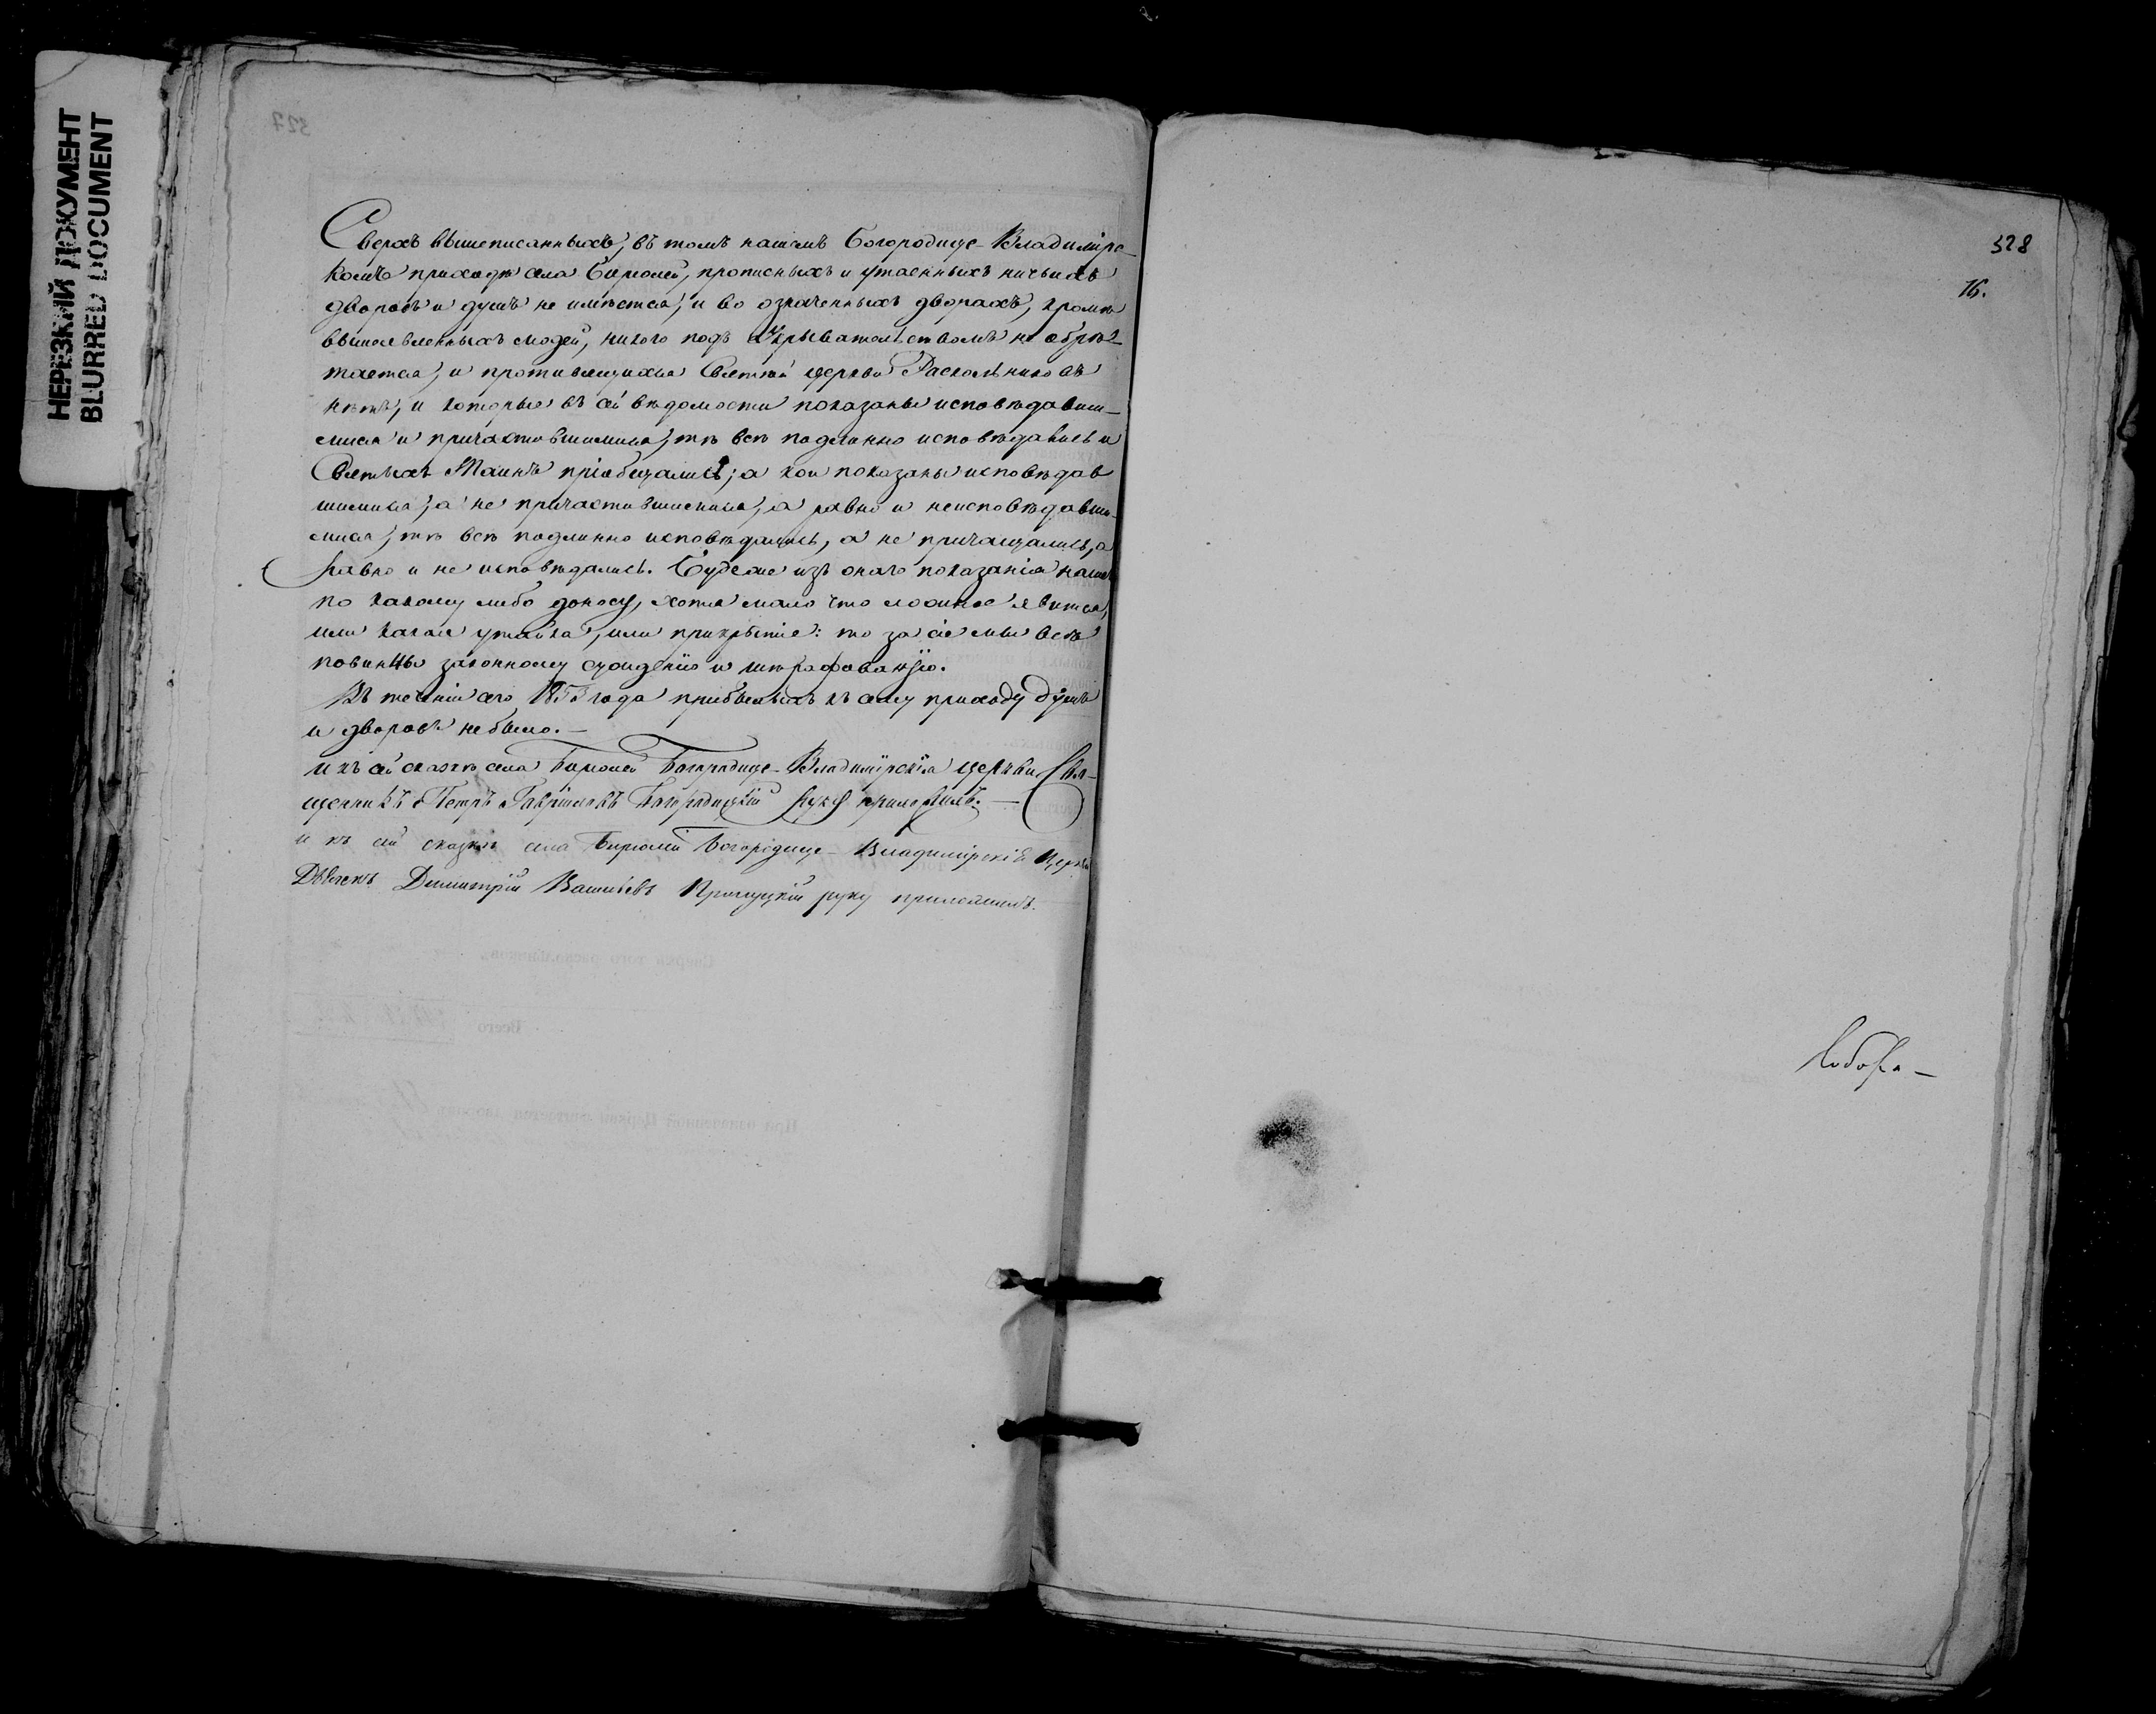 НЕРЕЗКИЙ ДОКУМЕНТ
BLURRED DOCUMENT
Сверхъ вышеписанныхъ, въ томъ нашемъ Богородице-Владимірс-
комъ приходѣ села прописныхъ и утаенныхъ ничьихъ
дворовъ и душъ не имѣется, и во означенныхъ дворахъ, кромѣ
вышеявленныхъ людей, никого подъ укрывательствомъ не обрѣ-
тается, и противящихся Святой церкви Раскольниковъ
нѣтъ, и которые въ сей вѣдомости показаны исповѣдавши-
мися и причастившимися, тѣ всѣ подлинно исповѣдались и
Святыхъ Таинъ пріобщались; а кои показаны исповѣдав
шимися, а не причастившимися, а равно и неисповѣдавши-
мися, тѣ всѣ подлинно исповѣдались, а не причащались, а
равно и не исповѣдались. Будеже изъ онаго показанія наше
по какому либо доносу, хотя мало что ложное явится,
или какая утайка, или прикрытіе: то за сіе мы всѣ
повинны законному сужденію и штрафованію.
Въ теченіи сего года прибылыхъ къ сему приходу душъ
и дворовъ небыло.—
и къ сей сказкѣ села Богородице-Владимірскія церкви Свя-
щенникъ Петръ Гавріиловъ Богородицкій руку приложилъ.—
и къ сей сказкѣ села Богородице-Владимірскія Церкви
Дьячекъ Димитрій Васильевъ руку приложилъ.
328
16.